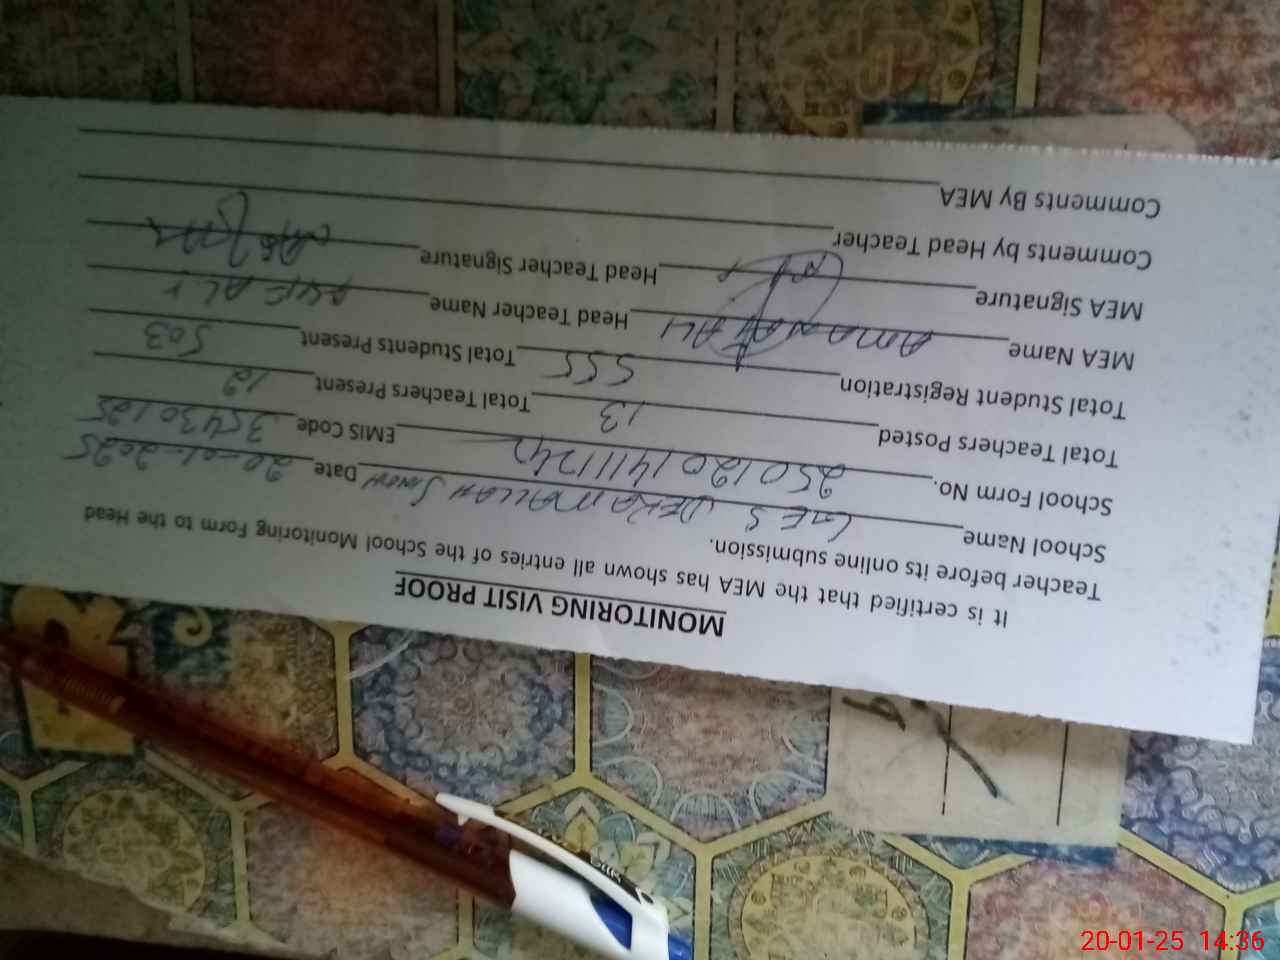 MONITORING VISIT PROOF
It is certified that the MEA has shown all entries of the School Monitoring Form to the Head
Teacher before its online submission.
School Name GES DERA MALLAH SINGH Date 20-01-2025
School Form No. EMIS Code 35430125
Total Teachers Posted 13 Total Teachers Present 12
Total Student Registration 555 Total Students Present 503
MEA Name AMANAT ALI Head Teacher Name ALI
MEA Signature Head Teacher Signature
Comments by Head Teacher
Comments By MEA
20-01-25 14:36